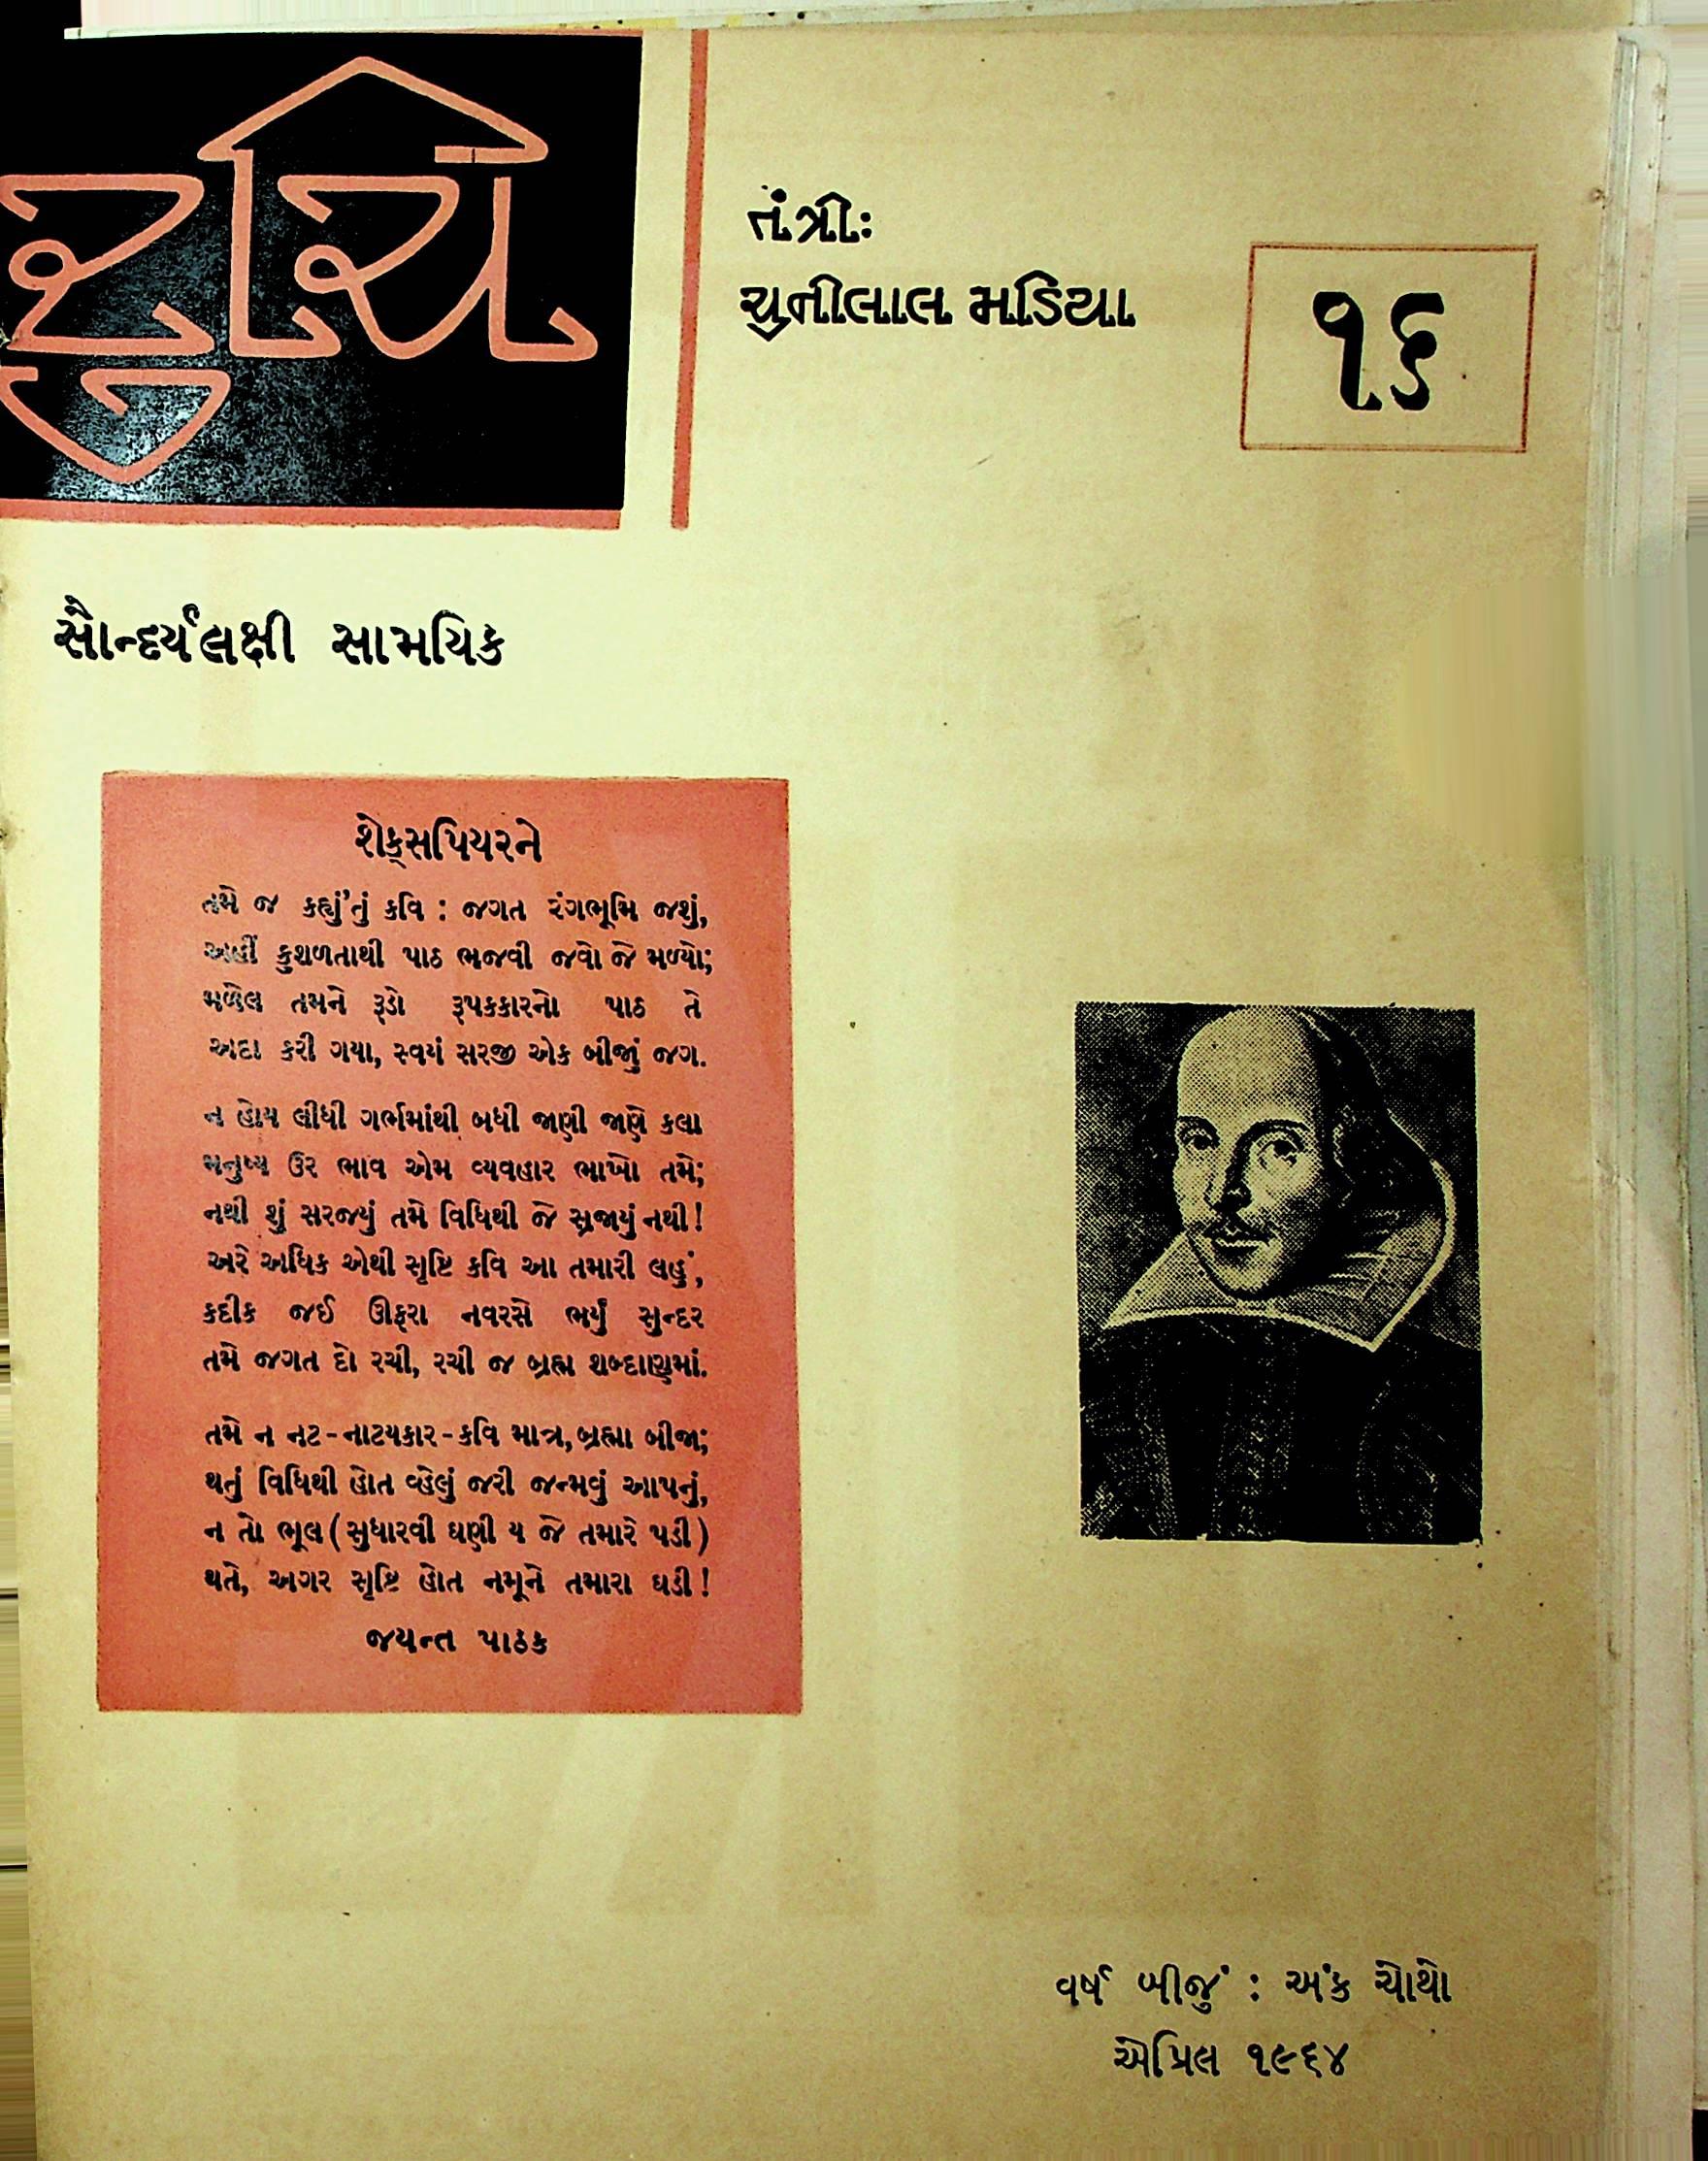 રુચિ
તંત્રીઃ
ચુનીલાલ મડિયા
૧૬
સૌન્દર્યલક્ષી સામયિક
શેક્સપિયરને
તમે જ કહ્યું'તું કવિ : જગત રંગભૂમિ જશું,
અહીં કુશળતાથી પાઠ ભજવી જવો જે મળ્યો;
મળેલ તમને રૂડો રૂપકકારનો પાઠ તે
અદા કરી ગયા, સ્વયં સરજી એક બીજું જગ.
ન હોય લીધી ગર્ભમાંથી બધી જાણી જાણે કલા
મનુષ્ય ઉર ભાવ એમ વ્યવહાર ભાખો તમે;
નથી શું સરજ્યું તમે વિધિથી જે સૃજાયું નથી!
અરે અધિક એથી સૃષ્ટિ કવિ આ તમારી લહું,
કદીક જઈ ઊફરા નવરસે ભર્યું સુન્દર
તમે જગત દો રચી, રચી જ બ્રહ્મ શબ્દાણુમાં.
તમે ન નટ-નાટ્યકાર-કવિ માત્ર, બ્રહ્મા બીજા;
થતું વિધિથી હોત વ્હેલું જરી જન્મવું આપનું,
ન તો ભૂલ (સુધારવી ઘણી ય જે તમારે પડી)
થતે, અગર સૃષ્ટિ હોત નમૂને તમારા ઘડી!
જયન્ત પાઠક
વર્ષ બીજું : અંક ચોથો
એપ્રિલ ૧૯૬૪